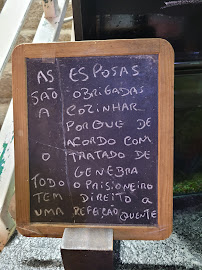 AS ESPOSAS
SÃO OBRIGADAS
A COZINHAR
PORQUE DE
ACORDO COM
O TRATADO DE
GENEBRA
TODO O PRISIONEIRO
TEM DIREITO A
UMA REFEIÇÃO QUENTE